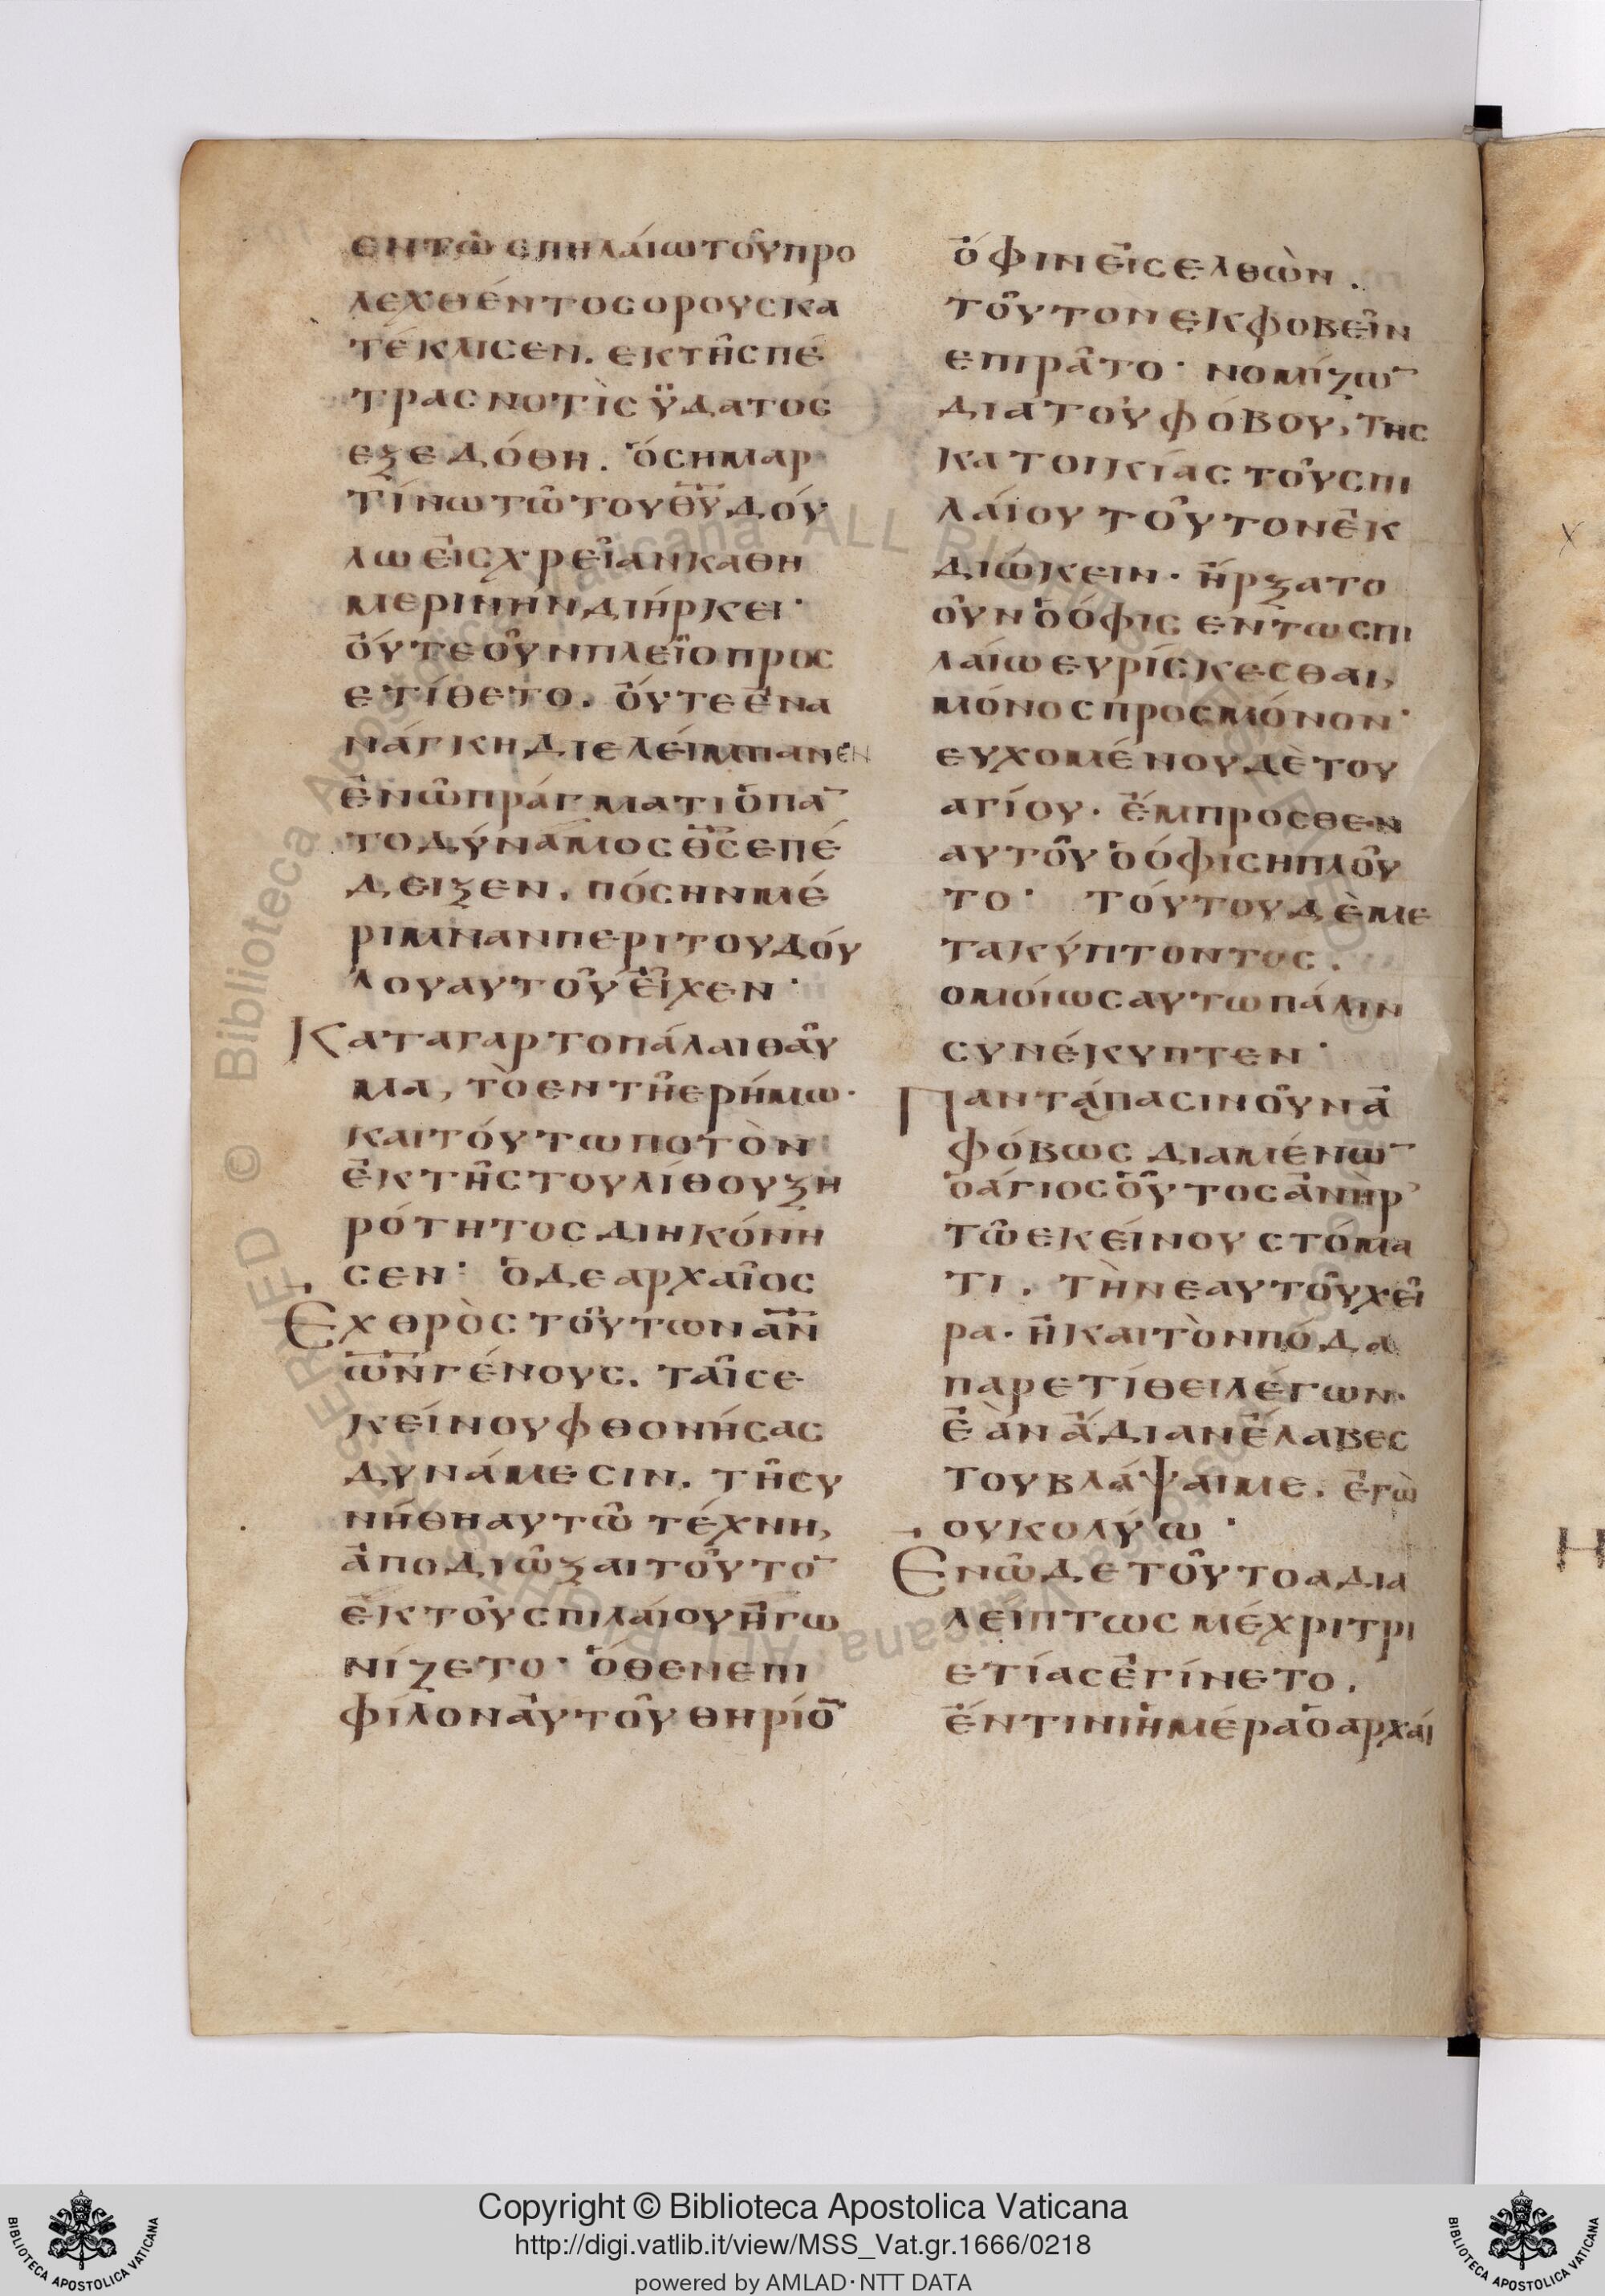 ενπτῶ σπηλάιω τοῦ προ
λεχθέντος ορους κα
τέκλισεν. εκ τῆς πέ
τρας νοτὶς ϋδατος
εξεδόθη. ὅς ημαρ
τίνω τῶ του θ̅υ̅ δόυ
λω εἰς χρεῖαν καθη
μερινὴν διήρκει·
ὄυτε οὖν πλεῖο προς
ετίθετο. ὄυτε ἐν α
νάγκη διελείμπανεν
ἐν ὧ πράγματι ὁ πα̅
τοδύναμος θ̅ς̅ επέ
δειξεν. πόσην μέ
ριμναν περι του δόυ
λου αυτοῦ εἶχεν·
Κατα γαρ το πάλαι θαῦ
μα, τὸ εν τῆ ερήμω·
και τόυτω ποτὸν
ἐκ τῆς του λίθου ξη
ρότητος διηκόνη
σεν· ὁ δε αρχαῖος
Εχθρὸς τοῦ των α̅ν̅
ω̅ν̅ γένους. ταῖς ε
κείνου φθονήσας
δυνάμεσιν. τῆ συ
νήθη αυτῶ τέχνη,
ἀποδιῶξαι τοῦτο̅
ἐκ του σπιλάιου ἠγω
νίζετο· ὅθεν επι
φίλον ἀυτοῦ θηρίο̅
ὄφιν εἰσελθὼν.
τοῦτον εκφοβεῖν
επιρᾶτο· νομίζω̅
δια του φόβου, της
κατοικίας τοῦ σπι
λάιου τοῦτον ἐκ
διώκειν· ἤρξατο
οὖν ὁ όφις εν τω σπι
λαίω ευρίσκεσθαι,
μόνος προς μόνον·
ευχομένου δὲ του
αγίου· ἔμπροσθεν
αυτοῦ ὁ όφις ηπλοῦ
το· τόυτου δὲ με
τακύπτοντος.
ομόιως αυτω πάλιν
συνέκυπτεν·
Παντάπασιν οῦν ἀ
φόβως διαμένω̅
ὁ άγιος οὗτος ἀνὴρ
τῶ εκείνου στόμα
τι. τὴν εαυτοῦ χεῖ
ρα· ἢ και τὸν πόδα
παρετίθει λέγων·
ἐὰν ἄδιαν ἔλαβες
του βλάψαι με. ἐγὼ
ου κολύω·
Εν ὧ δε τοῦτο αδια
λειπτως μέχρι τρι
ετίας ἐγίνετο.
ἔν τινι ἡμέρα ὁ αρχάι
Copyright © Biblioteca Apostolica Vaticana
http://digi.vatlib.it/view/MSS_Vat.gr.1666/0218
powered by AMLAD·NTT DATA